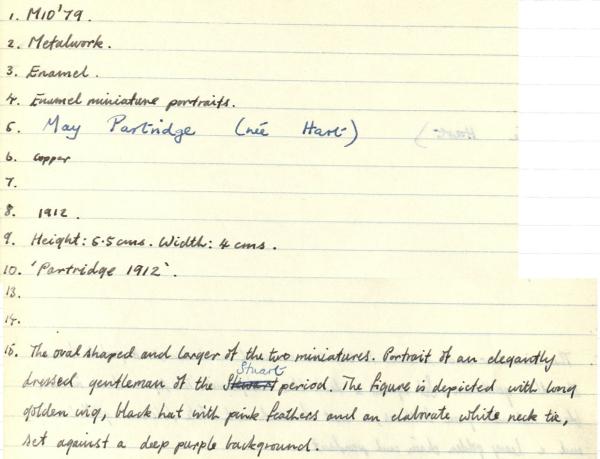 1. M10'79.
2. Metalwork.
3. Enamel.
4. Enamel miniature portraits.
5. May Partridge (née Hart)
6. Copper
7.
8. 1912.
9. Height: 5.5 cms. Width: 4 cms.
10. 'Partridge 1912'.
13.
14.
15. The oval shaped and larger of the two miniatures. Portrait of an elegantly
dressed gentleman of the Stuart period. The figure is depicted with long
golden wig, black hat with pink feathers and an elaborate white neck tie,
set against a deep purple background.